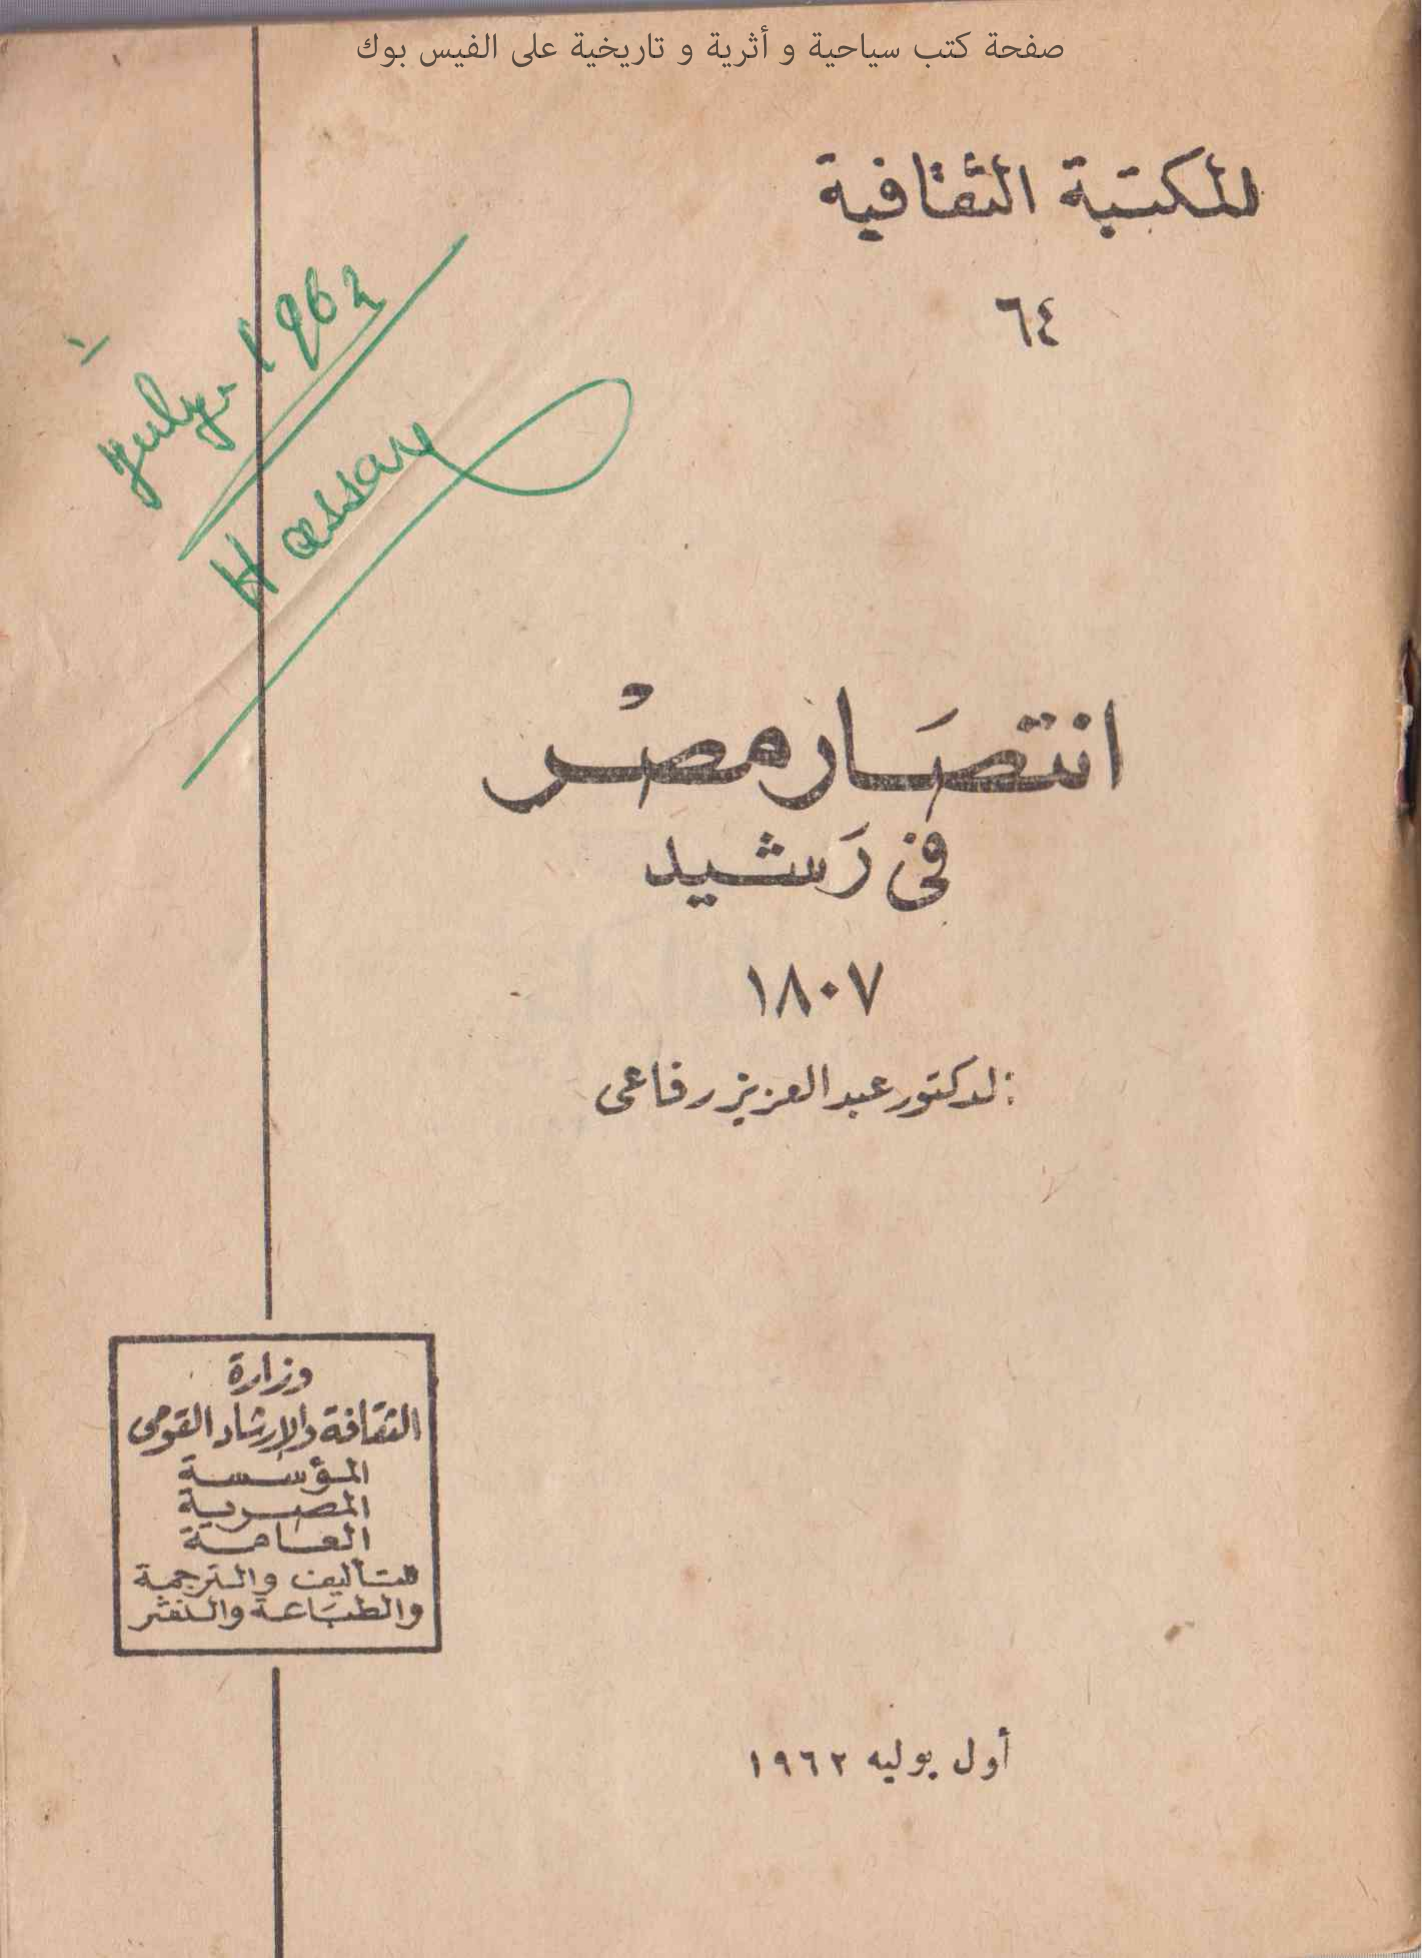 صفحة كتب سياحية و أثرية و تاريخية على الفيس بوك
المكتبة الثقافية
٦٤
1
July 1962
Hassan
انتصار مصر
فى رشيد
١٨٠٧
الدكتور عبد العزيز رفاعى
وزارة
الثقافة والإرشاد القومى
المؤسسة
المصرية
العامة
للتأليف والترجمة
والطباعة والنشر
أول يوليه ١٩٦٢